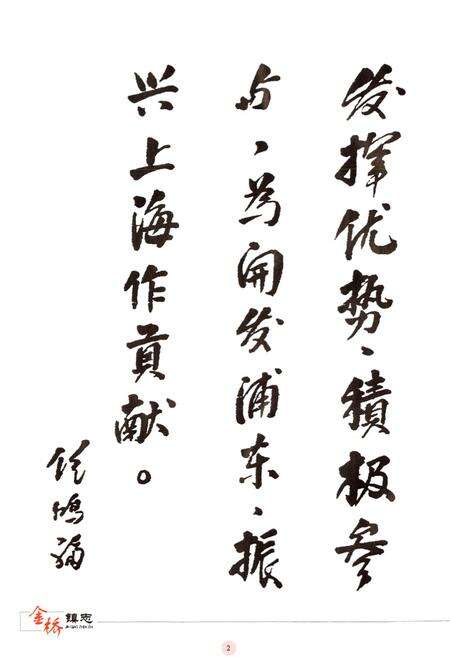 发挥优势、積极参
与、為開发浦东、振
兴上海作貢献。
倪鸿福
金桥 镇志
2